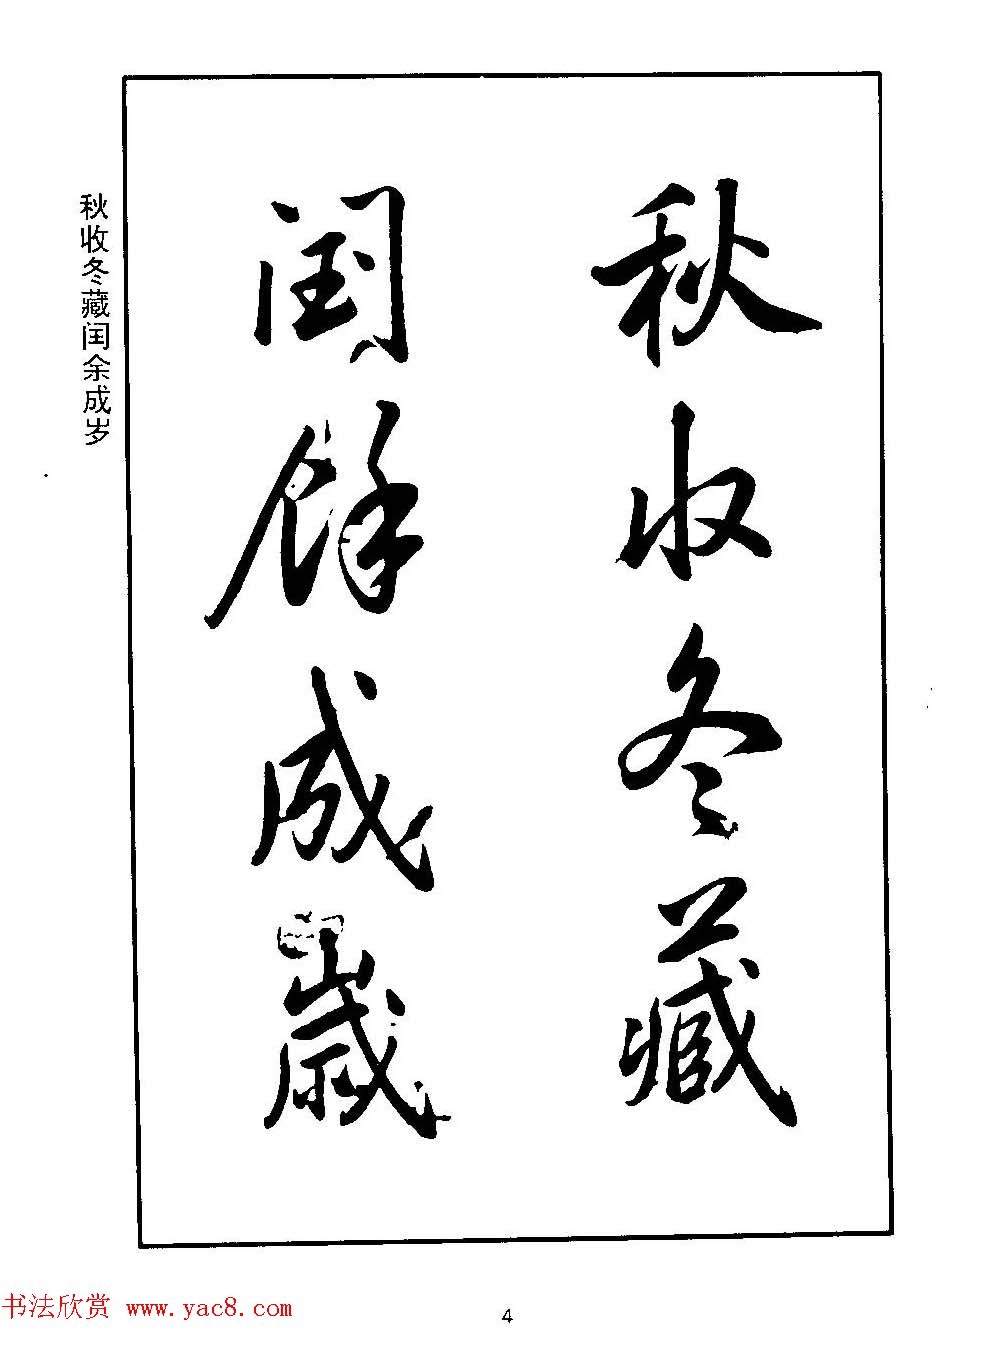 秋收冬藏
閏餘成歲
秋收冬藏闰余成岁
书法欣赏 www.yac8.com
4